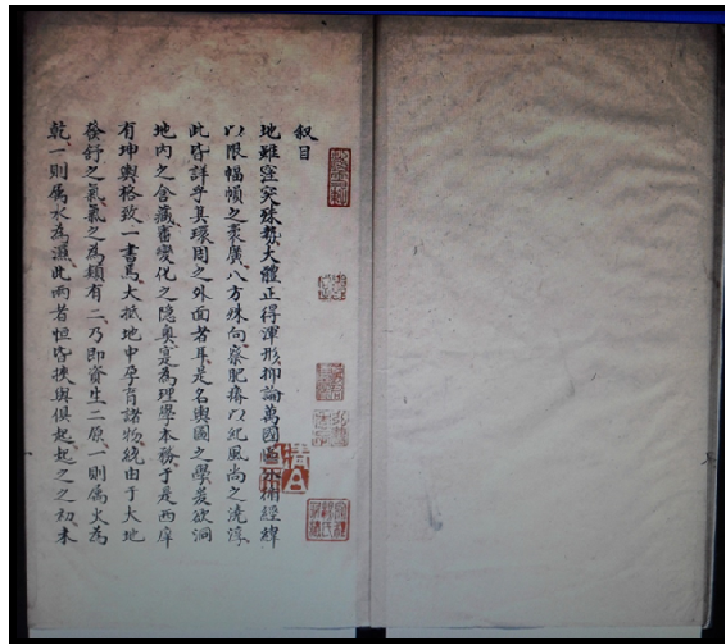 叙目
地雖窪突殊勢大體正得渾形抑論萬國區分補經緯
以限幅幀之袤廣八方殊向察肥瘠以紀風尚之澆淳
此皆詳乎其環周之外面者耳是名輿圖之學爰欲洞
地內之含藏審變化之隱奧寔為理學本務于是西庠
有坤輿格致一書焉大抵地中孕育諸物統由于大地
發舒之氣氣之為類有二乃即資生二原一則屬火為
乾一則属水為濕此兩者恒皆挾與俱起起之之初本